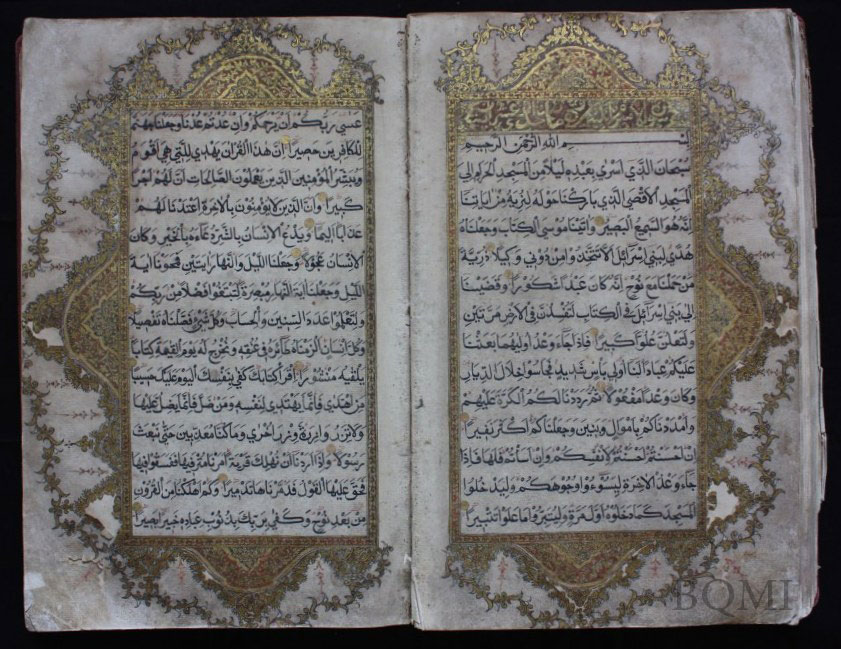 بسم الله الرحمن الرحيم
سبحان الذي اسرى بعبده ليلا من المسجد الحرام الى
المسجد الاقصى الذي باركنا حوله لنريه من اياتنا
انه هو السميع البصير واتينا موسى الكتاب وجعلناه
هدى لبني اسرائل الا تتخذوا من دوني وكيلا ذرية
من حملنا مع نوح انه كان عبدا شكورا وقضينا
الى بني اسرائل في الكتاب لتفسدن في الارض مرتين
ولتعلن علوا كبيرا فاذا جاء وعد اوليهما بعثنا
عليكم عبادا لنا اولي بأس شديد فجاسوا خلال الديار
وكان وعدا مفعولا ثم رددنا لكم الكرة عليهم
وامددناكم باموال وبنين وجعلناكم اكثر نفيرا
ان احسنتم احسنتم لانفسكم وان اسأتم فلها فاذا
جاء وعد الاخرة ليسوءوا وجوهكم وليدخلوا
المسجد كما دخلوه اول مرة وليتبروا ما علوا تتبيرا
عسى ربكم ان يرحمكم وان عدتم عدنا وجعلنا جهنم
للكافرين حصيرا ان هذا القران يهدي للتي هي اقوم
ويبشر المؤمنين الذين يعملون الصالحات ان لهم اجرا
كبيرا وان الذين لا يؤمنون بالاخرة اعتدنا لهم
عذابا اليما ويدع الانسان بالشر دعاءه بالخير وكان
الانسان عجولا وجعلنا الليل والنهار ايتين فمحونا اية
الليل وجعلنا اية النهار مبصرة لتبتغوا فضلا من ربكم
ولتعلموا عدد السنين والحساب وكل شيء فصلناه تفصيلا
وكل انسان الزمناه طائره في عنقه ونخرج له يوم القيمة كتابا
يلقيه منشورا اقرأ كتابك كفى بنفسك اليوم عليك حسيبا
من اهتدى فانما يهتدي لنفسه ومن ضل فانما يضل عليها
ولا تزر وازرة وزر اخرى وما كنا معذبين حتى نبعث
رسولا واذا اردنا ان نهلك قرية امرنا مترفيها ففسقوا فيها
فحق عليها القول فدمرناها تدميرا وكم اهلكنا من القرون
من بعد نوح وكفى بربك بذنوب عباده خبيرا بصيرا
BQMI